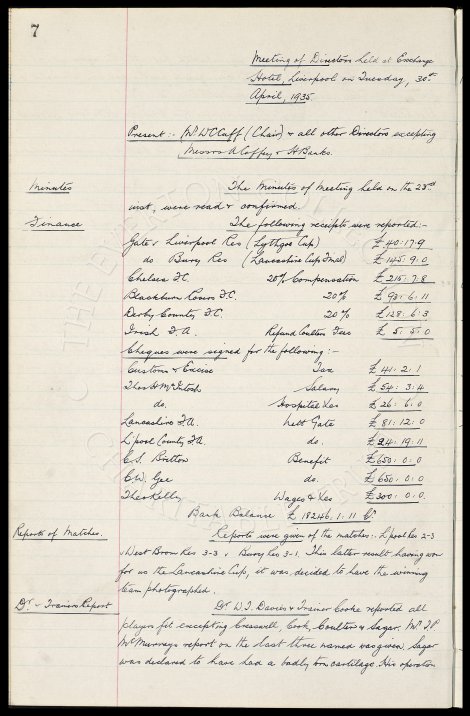 7
Meeting of Directors held at Exchange
Hotel, Liverpool on Tuesday, 30th
April, 1935
Present:- Mr W C Cuff (Chair) & all other Directors excepting
Messrs A Coffey & H Banks.
Minutes The Minutes of Meeting held on the 23rd
inst, were read & confirmed.
Finance The following receipts were reported:-
Gate v Liverpool Res (Lythgoe Cup) £40:17:9
do Bury Res (Lancashire Cup Final) £145:9:0
Chelsea F.C. 20% Compensation £215:7:8
Blackburn Rovers F.C. 20% £93:6:11
Derby County F.C. 20% £128:6:3
Irish F.A. Refund Coulter Fees £5:5:0
Cheques were signed for the following:-
Customs & Excise Tax £41:2:1
Theo H McIntosh Salary £54:3:4
do. Hospital &es £26:6:0
Lancashire F.A. Nett Gate £81:12:0
L'pool County F.A. do. £24:19:11
C.S. Britton Benefit £650:0:0
C.W. Gee do. £650:0:0
Theo Kelly Wages &es £300:0:0
Bank Balance £18246:1:11 Cr
Reports of Matches. Reports were given of the matches:- L'pool Res 2-3
v West Brom Res 3-3 v Bury Res 3-1. This latter result having won
for us the Lancashire Cup, it was decided to have the winning
team photographed.
Dr. & Trainers Report Dr. W.J. Davies & Trainer Cooke reported all
players fit excepting Cresswell, Cook, Coulter & Sagar. Mr T.P.
McMurray's report on the last three named was given. Sagar
was declared to have had a badly torn cartilage. His operation